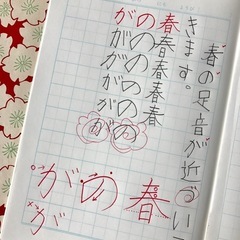 春の足音が近づいて
きます。
春春春春春
のののののの
ががががががが
春
の
が
が